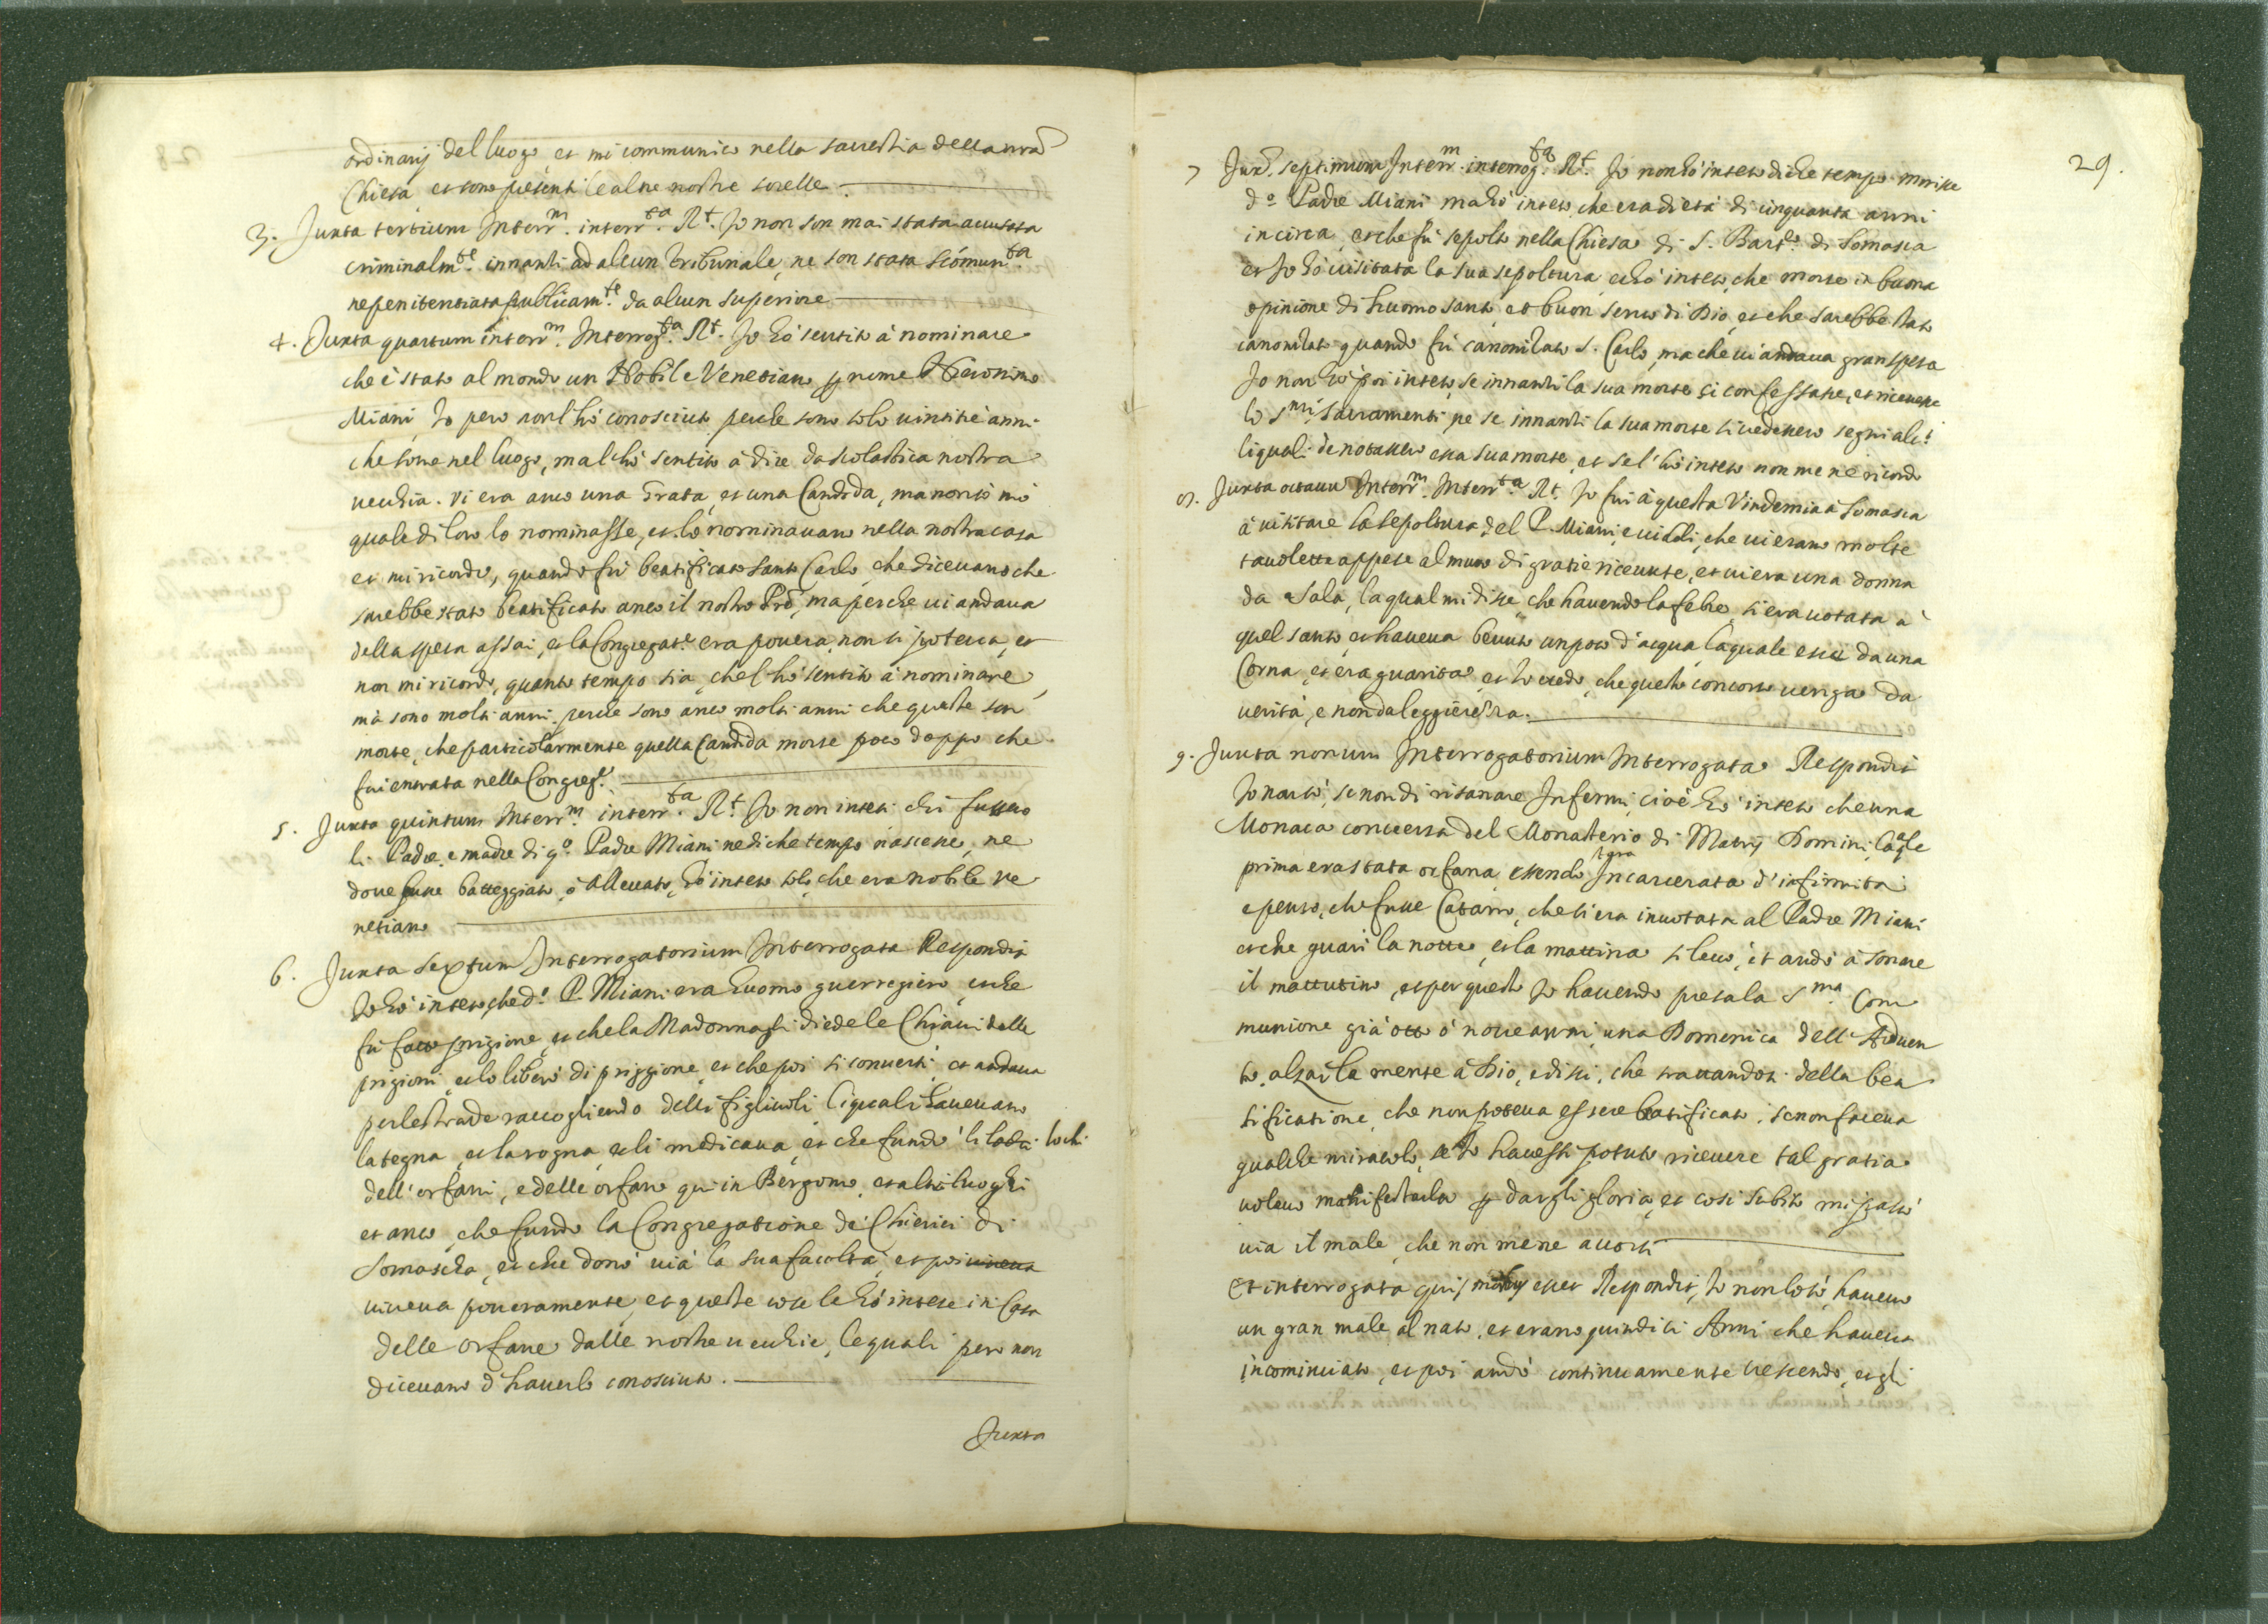 ordinarij del luogo et mi communico nella sacrestia della nra
Chiesa et sono presenti le altre nostre sorelle
3. Juxta tertium Interr.m interr.ta R.t Io non son mai stata accusata
criminalm.te innanti ad alcun Tribunale, ne son stata scómun.ta
ne penitentiata publicam.te da alcun superiore
4. Juxta quartum interr.m Interrog.ta R.t Io hò sentito à nominare
che è stato al mondo un Nobile Venetiano p nome Hieronimo
Miani, Io pero non l'hò conosciuto perche sono solo vintitrè anni
che sono nel luogo, ma l'hò sentito à dire da scolastica nostra
vecchia. Vi era anco una Grata, et una Candida, ma non sò mò
quale di loro lo nominasse, et lo nominavano nella nostra casa
et mi ricordo, quando fù beatificato Santo Carlo, che dicevano che
sarebbe stato beatificato anco il nostro Prē, ma perche vi andava
della spesa assai, et la Congregat.e era povera, non si poteva, et
non mi ricordo, quanto tempo sia, che l'hò sentito à nominare,
mà sono molti anni, perche sono anco molti anni che queste son
morte, che particolarmente quella Candida morse poco doppo che
fui entrata nella Congreg.e
5. Juxta quintum Interr.m interr.ta R.t Io non intesi chi fussero
li Padre, e madre di q.o Padre Miani ne di che tempo nascesse, ne
dove fusse batteggiato, ò Allevato, hò inteso solo che era nobile ve
netiano
6. Juxta sextum Interrogatorium Interrogata Respondit
Io hò inteso, che d.o P. Miani era huomo guerregiero, et che
fù fatto prigione, et che la Madonna gli diede le Chiavi delle
prigioni, et lo liberò di priggione, et che poi si convertì, et andava
per le strade raccogliendo delli figliuoli li quali havevano
la tegna, et la rogna, et li medicava, et che fundò li lochi
dell'orfani, e delle orfane qui in Bergomo, et altri luoghi
et anco, che fundò la Congregatione de Chierici di
Somascha, et che donò via la sua facoltà, et poi viveva
viveva poveramente, et queste cose le hò intese in Casa
delle orfane dalle nostre vecchie, le quali pero non
dicevano d'haverlo conosciuto.
Juxta
29.
7 Jux.a septimum Interr.m interrog.ta R.t Io non hò inteso di che tempo morisse
d.o Padre Miani ma hò inteso, che era di età di cinquanta anni
in circa, et che fù sepolto nella Chiesa di S. Bart.o di Somasca
et Io hò visitata la sua sepoltura, et hò inteso, che morse in buona
opinione di huomo santo, et buon servo di Dio, et che sarebbe stato
canonizato quando fù canonizato S. Carlo, ma che vi andava gran spesa
Io non hò poi inteso, se innanti la sua morte si confessasse, et ricevesse
lo S.mi sacramenti, ne se innanti la sua morte si vedessero segni alc.i
li quali denotassero essa sua morte, et se l'hò inteso non me ne ricordo
8. Juxta octavum Interr.m Interr.ta R.t Io fui à questa Vindemia à Somasca
à visitare la sepoltura del P. Miani, e viddi, che vi erano molte
tavolette appese al muro di gratie ricevute, et vi era una donna
da Sala, la qual mi disse, che havendo la febre, si era votata à
quel santo, et haveva bevuto un poco d'acqua, la quale esce da una
Corna, et era guarita, et Io credo, che questo concorso venga da
verità, e non da leggierezza.
9. Juxta nonum Interrogatorium Interrogata Respondit
Io non sò, se non di risanare Infermi, cioè hò inteso che una
Monaca conversa del Monasterio di Matris Domini, la qle
prima era stata orfana, essendo Incarcerata d'infirmità
e penso, che fusse Catarro, che si era invotata al Padre Miani
et che guarì la notte, et la mattina si levò, et andò à sonare
il mattutino, et per questo Io havendo presa la S.ma Com
munione già otto ò nove anni, una Domenica dell'Adven
to, alzai la mente à Dio, e dissi, che trattandosi della bea
tificatione, che non poteva essere beatificato, se non faceva
qualche miracolo, se Io havessi potuto ricevere tal gratia
volevo manifestarla p dargli gloria, et così subito mi passò
via il male, che non me ne accorsi
Et interrogata quis morbus esset Respondit, Io non lo sò, havevo
un gran male al naso, et erano quindici Anni che haveva
incominciato, et poi andò continuamente crescendo, et gli